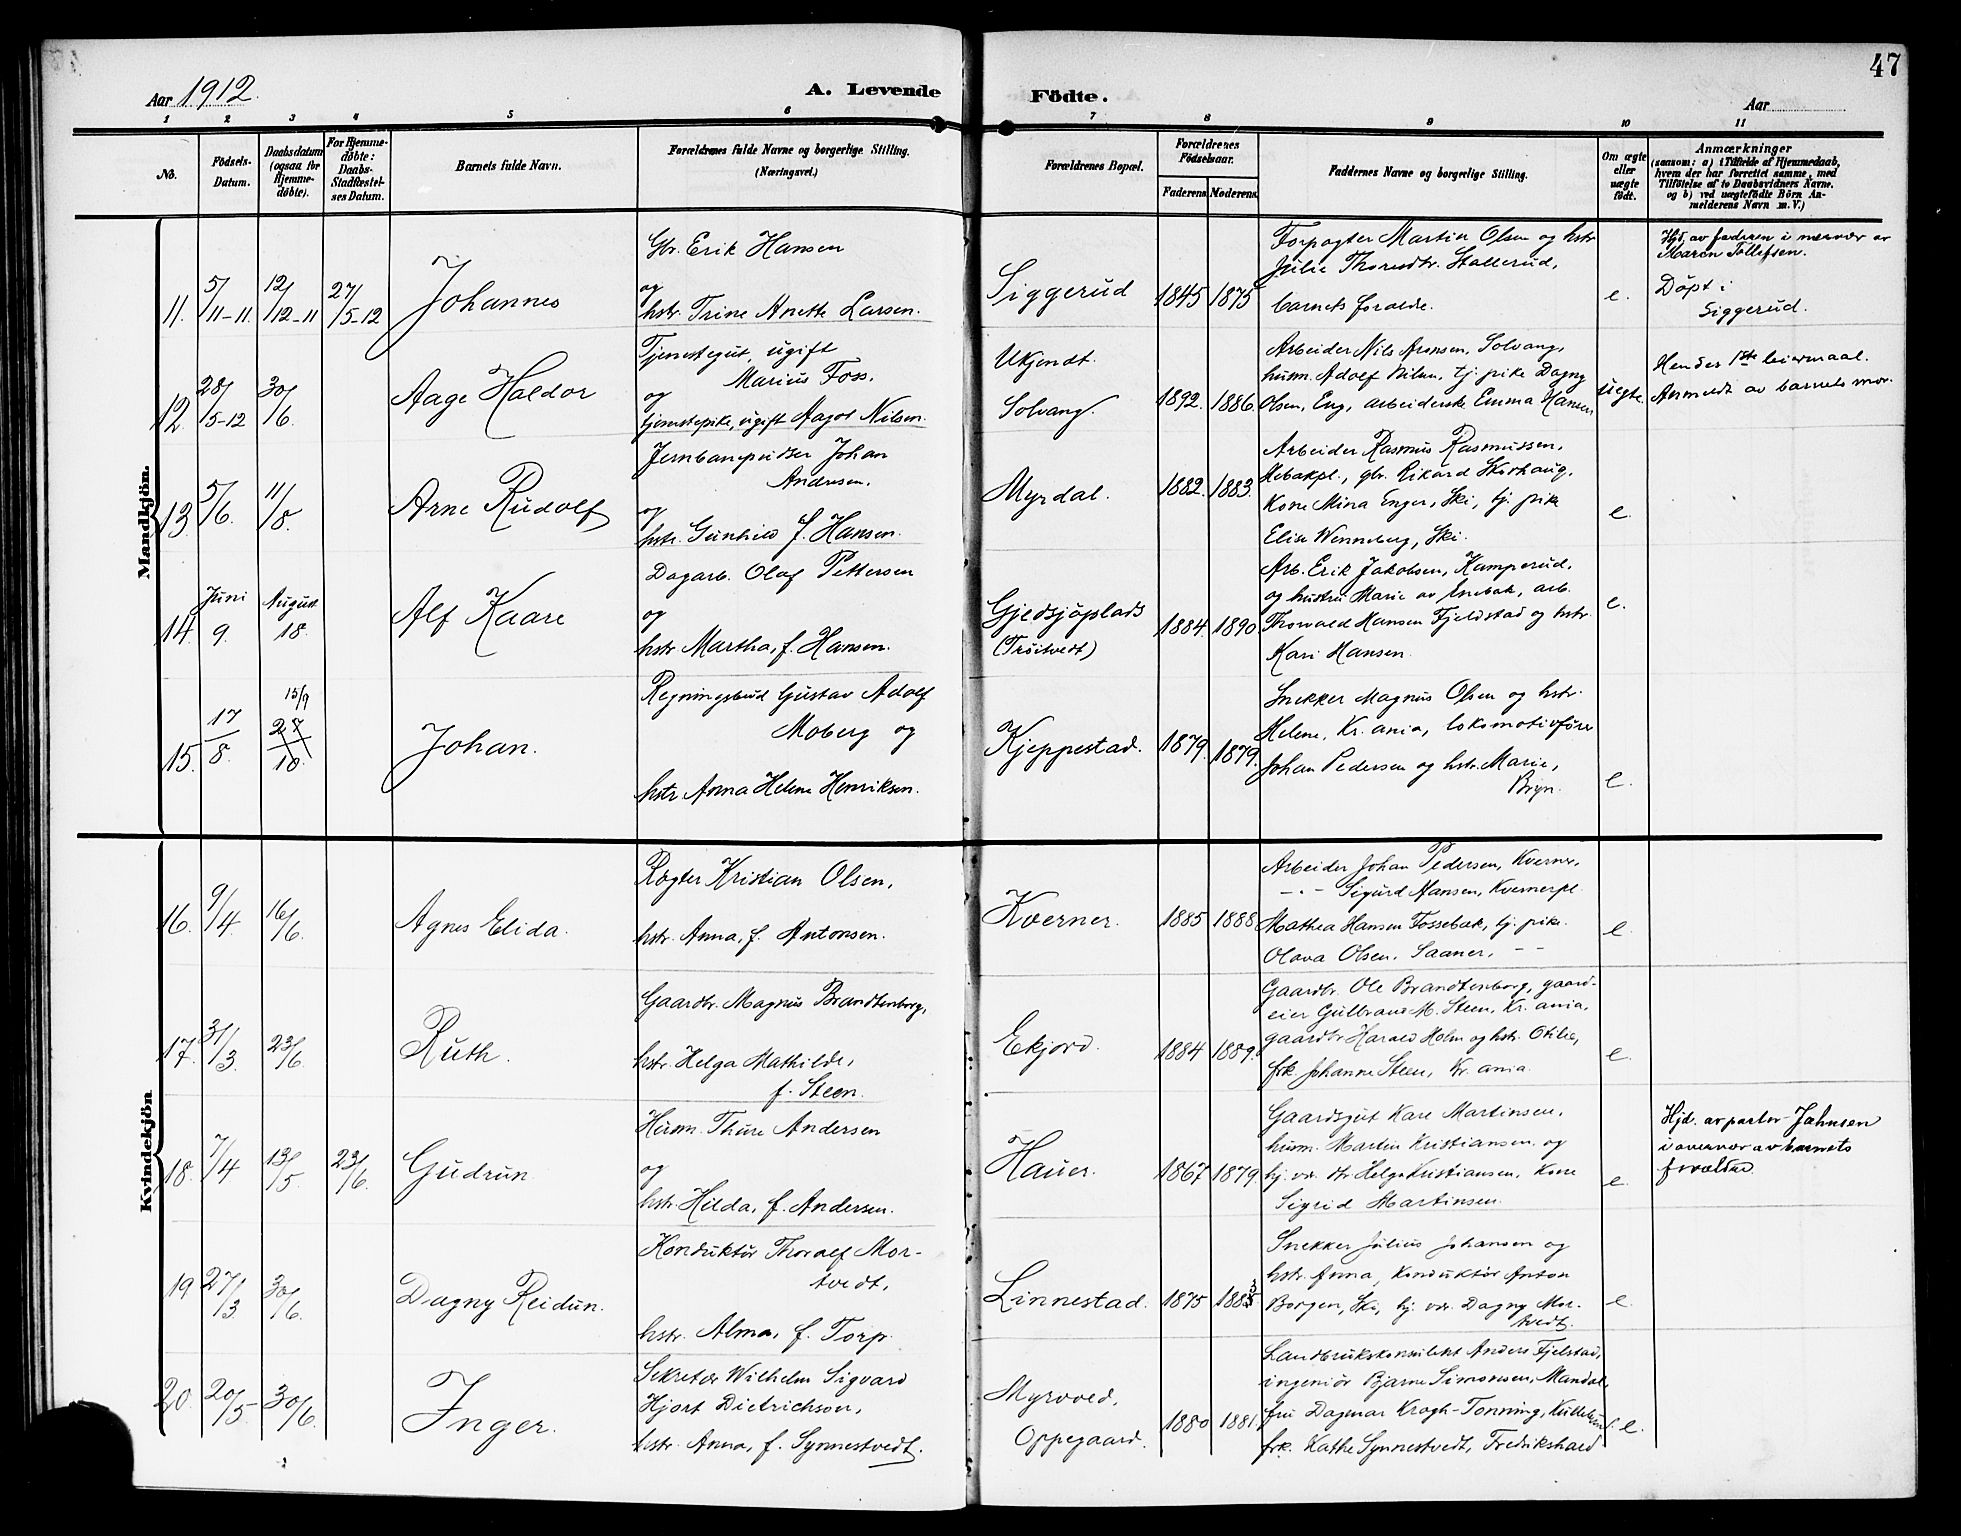 47
Aar 1912.
A. Levende Födte.
Aar
1 2 3 4 5 6 7 8 9 10 11
No.
Födsels-Datum.
Daabsdatum (ogsaa for Hjemme-döbte).
For Hjemme-döbte: Daabs-Stadfæstel-ses Datum.
Barnets fulde Navn.
Forældrenes fulde Navne og borgerlige Stilling. (Næringsvei.)
Forældrenes Bopæl.
Forældrenes Födselsaar.
Faderens Moderens
Faddernes Navne og borgerlige Stilling.
Om ægte eller uægte födt.
Anmærkninger
(saasom: a) i Tilfælde af Hjemmedaab, hvem der har forrettet samme, med Tilföielse af to Daabsvidners Navne, og b) ved uægtefödte Börn Anmelderens Navn m. V.)
Mandkjön.
11. 5/11-11. 12/12-11 27/5-12 Johannes
Gbr. Erik Hansen
og
hstr. Trine Anette Larsen.
Siggerud 1845 1875
Forpagter Martin Olsen og hstr
Julie Thoresdtr. Stallerud,
barnets foraldre.
e.
Hjd. av faderen i nærvær av
Maren Tollefsen.
Döpt i
Siggerud.
12. 28/5-12 30/6. Aage Haldor
Tjenestegut, ugift
Marius Foss.
og
tjenestepike, ugift Aagot Nilsen.
Ukjendt.
Solvang. 1892. 1886.
Arbeider Nils Aronsen, Solvang,
husm. Adolf Nilsen, tj. pike Dagny
Olsen, Eng, arbeiderske Emma Hansen
uegte.
Hendes 1ste leiermaal.
Anmeldt av barnets mor.
13. 5/6. 11/8. Arne Rudolf
Jernbanespidser Johan
Andersen.
og
hstr. Gunhild f. Hansen.
Myrdal. 1882. 1883.
Arbeider Rasmus Rasmussen,
gbr. Rikard Skorhaug,
Kone Mina Enger, Ski, tj. pike
Elise Wenneberg, Ski.
e.
14. Juni 9. August 18. Alf Kaare
Dagarb. Olaf Pettersen
og
hstr. Martha, f. Hansen.
Gjedsjöplads
(Tröitvedt) 1884. 1890
Arb. Erik Jakobsen, Kamperud,
og hustru Marie av Enebak, arb.
Thorvald Hansen Fjeldstad og hstr.
Kari Hansen.
e.
15. 17/8. 15/9 27/10. Johan.
Regningsbud Gustav Adolf
Moberg og
hstr Anna Helene Henriksen.
Kjeppestad. 1879. 1879.
Snekker Magnus Olsen og hstr.
Helene, Kr.ania, lokomotivförer
Johan Pedersen og hstr. Marie,
Bryn.
e.
Kvindekjön
16. 9/4. 16/6. Agnes Elida.
Rögter Kristian Olsen,
hstr. Anna, f. Antonsen.
Kverner. 1885 1888
Arbeider Johan Pedersen, Kverner,
-"- Sigurd Hansen, Kvernerpl.
Mathea Hansen Fossebæk, tj. pike.
Olava Olsen, Saaner, - -
e.
17. 31/3. 23/6. Ruth.
Gaardbr. Magnus Brandtenborg,
hstr. Helga Mathilde,
f. Steen.
Ekjord. 1884 1889.
Gaardbr. Ole Brandtenborg, gaard-
eier Gulbrand M. Steen, Kr.ania,
gaardbr. Harald Holm og hstr. Otilie,
frk. Johanne Steen, Kr.ania.
e.
18. 7/4 13/5 23/6. Gudrun
Husm. Thure Andersen
og
hstr. Hilda, f. Andersen.
Hauer. 1867 1879.
Gaardsgut Kare Martinsen,
husm. Martin Kristiansen og
hj.vær. dtr Helga Kristiansen, Kone
Sigrid Martinsen.
e.
Hjd. av pastor Jahnsen
i overvær av barnets
forældre.
19 27/3 30/6. Dagny Reidun.
Konduktör Thoralf Mor-
tvedt,
hstr. Alma, f. Torp.
Linnestad. 1875 1883
Snekker Julius Johansen og
hstr. Anna, Konduktör Anton
Borgen, Ski, hj. vær. Dagny Mor-
tvedt.
e.
20. 20/5- 30/6. Inger.
Sekretær Wilhelm Sigvard
Hjort Dietrichson,
hstr. Anna, f. Synnestvedt.
Myrvold,
Oppegaard. 1880 1881.
Landbrukskonsulent Anders Fjelstad,
ingeniör Bjarne Simonsen, Mandal,
fru Dagmar Krogh-Tonning,
frk. Kathe Synnestvedt, Fredrikshald
e.